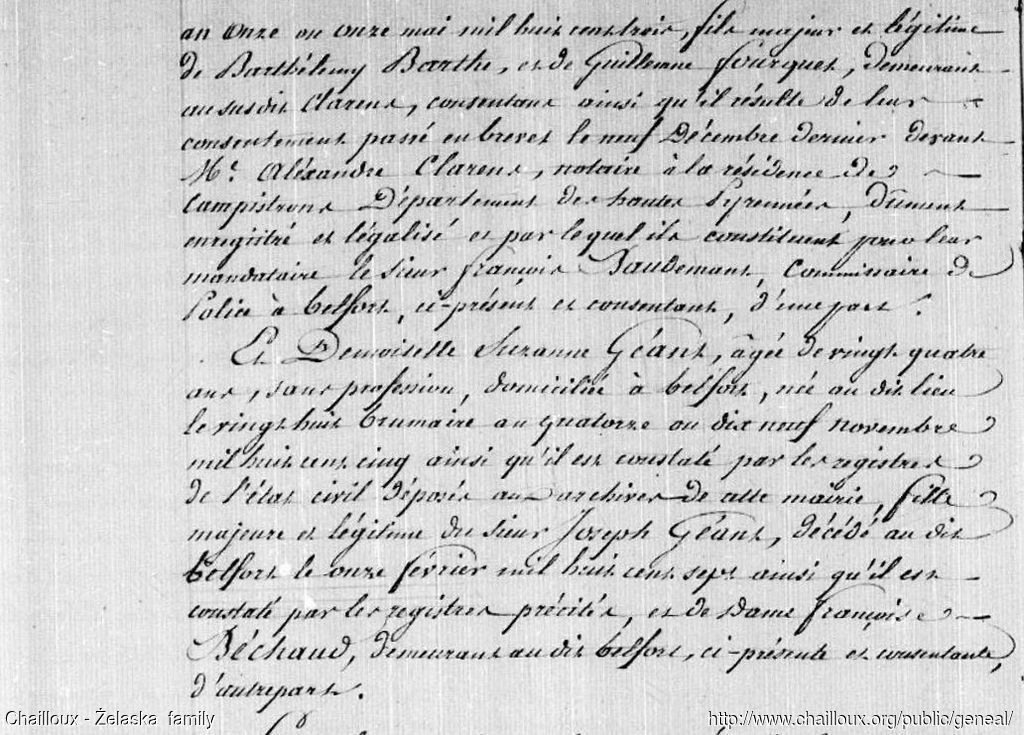 an onze ou onze mai mil huit cent trois, fils majeur et légitime
de Barthélemy Barthe, et de Guillemine Fourquet, demeurant
au susdit Clarens, consentans ainsi qu'il résulte de leur
consentement passé en brevet le neuf Décembre dernier devant
Me. Aléxandre Clarens, notaire à la résidence de
Campistrous Département des hautes Pyrennées, dûment
enregistré et légalisé et par lequel ils constituent pour leur
mandataire le sieur françois Baudemant, Commissaire de
Police à belfort, ci-présent et consentant, d'une part.
Et Demoiselle Suzanne Géant, âgée de vingt quatre
ans, sans profession, domiciliée à belfort, née au dit lieu
le vingt huit brumaire an quatorze ou dix neuf novembre
mil huit cent cinq ainsi qu'il est constaté par les registres
de l'état civil déposés aux archives de cette mairie, fille
majeure et légitime du sieur Joseph Géant, décédé au dit
belfort le onze février mil huit cent sept ainsi qu'il est
constaté par les registres précités, et de dame françoise
Béchaud, demeurant au dit belfort, ci-présente et consentante,
d'autre part.
Chailloux - Żelaska family
http://www.chailloux.org/public/geneal/